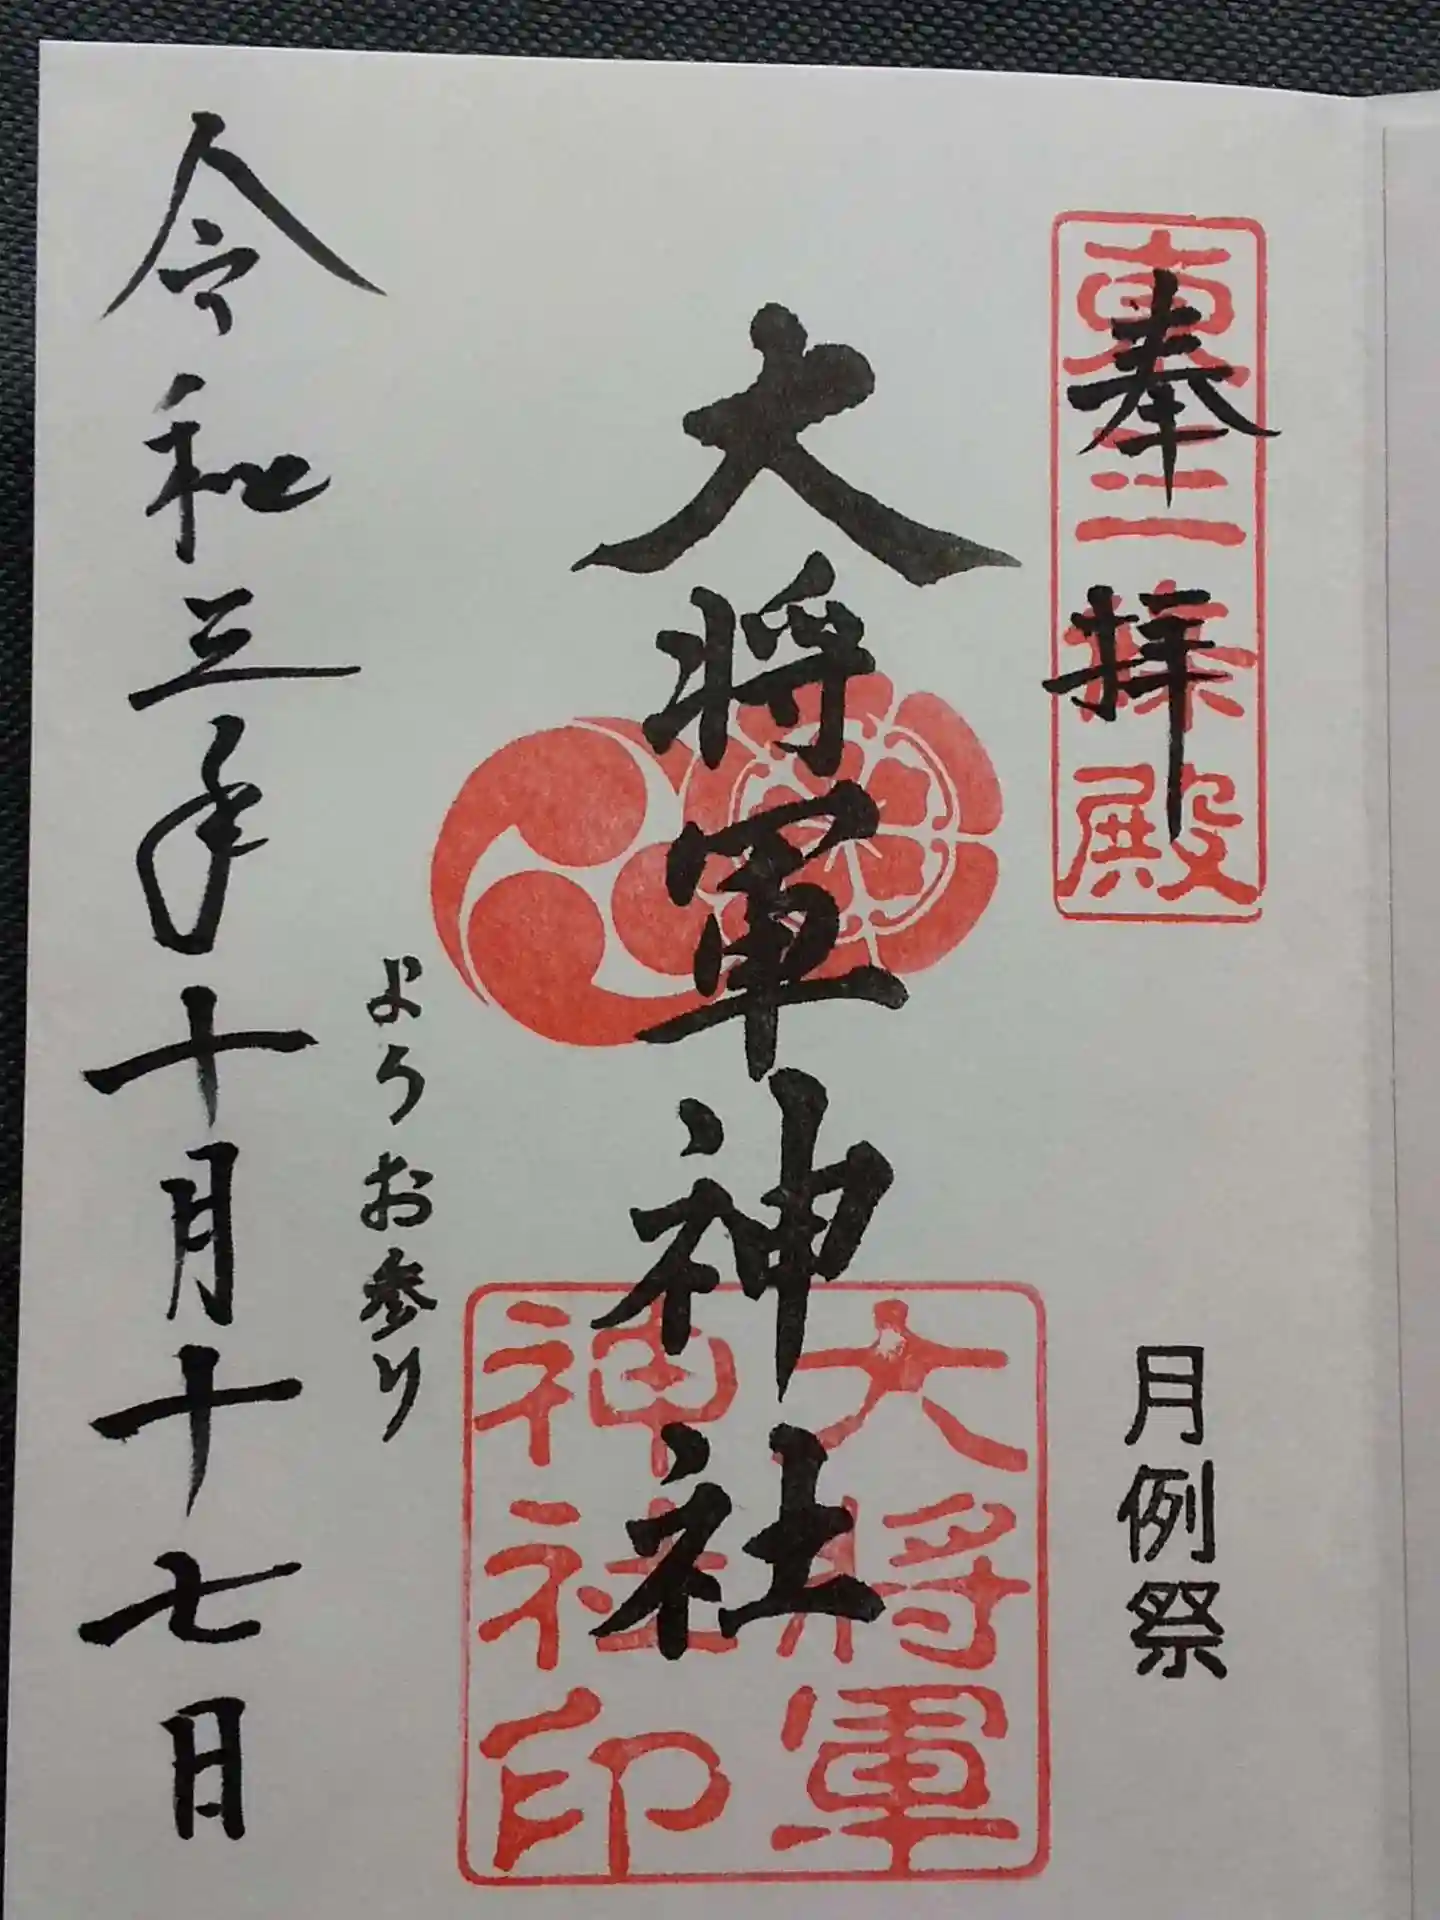 奉拝
東三條殿
月例祭
大将軍神社
大将軍
神社印
ようお参り
令和三年十月十七日